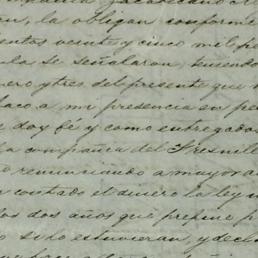 la obligan conforme
entos veinte y cinco mil pe
ula se señalaron, siendo
ero y tres del presente que
a mi presencia en pe
e doy fé y como entregados
la compañia del Fresnill
renunciando a mayor a
costado el dinero la ley n
los dos años que prefine p
si lo estuvieran, y decl